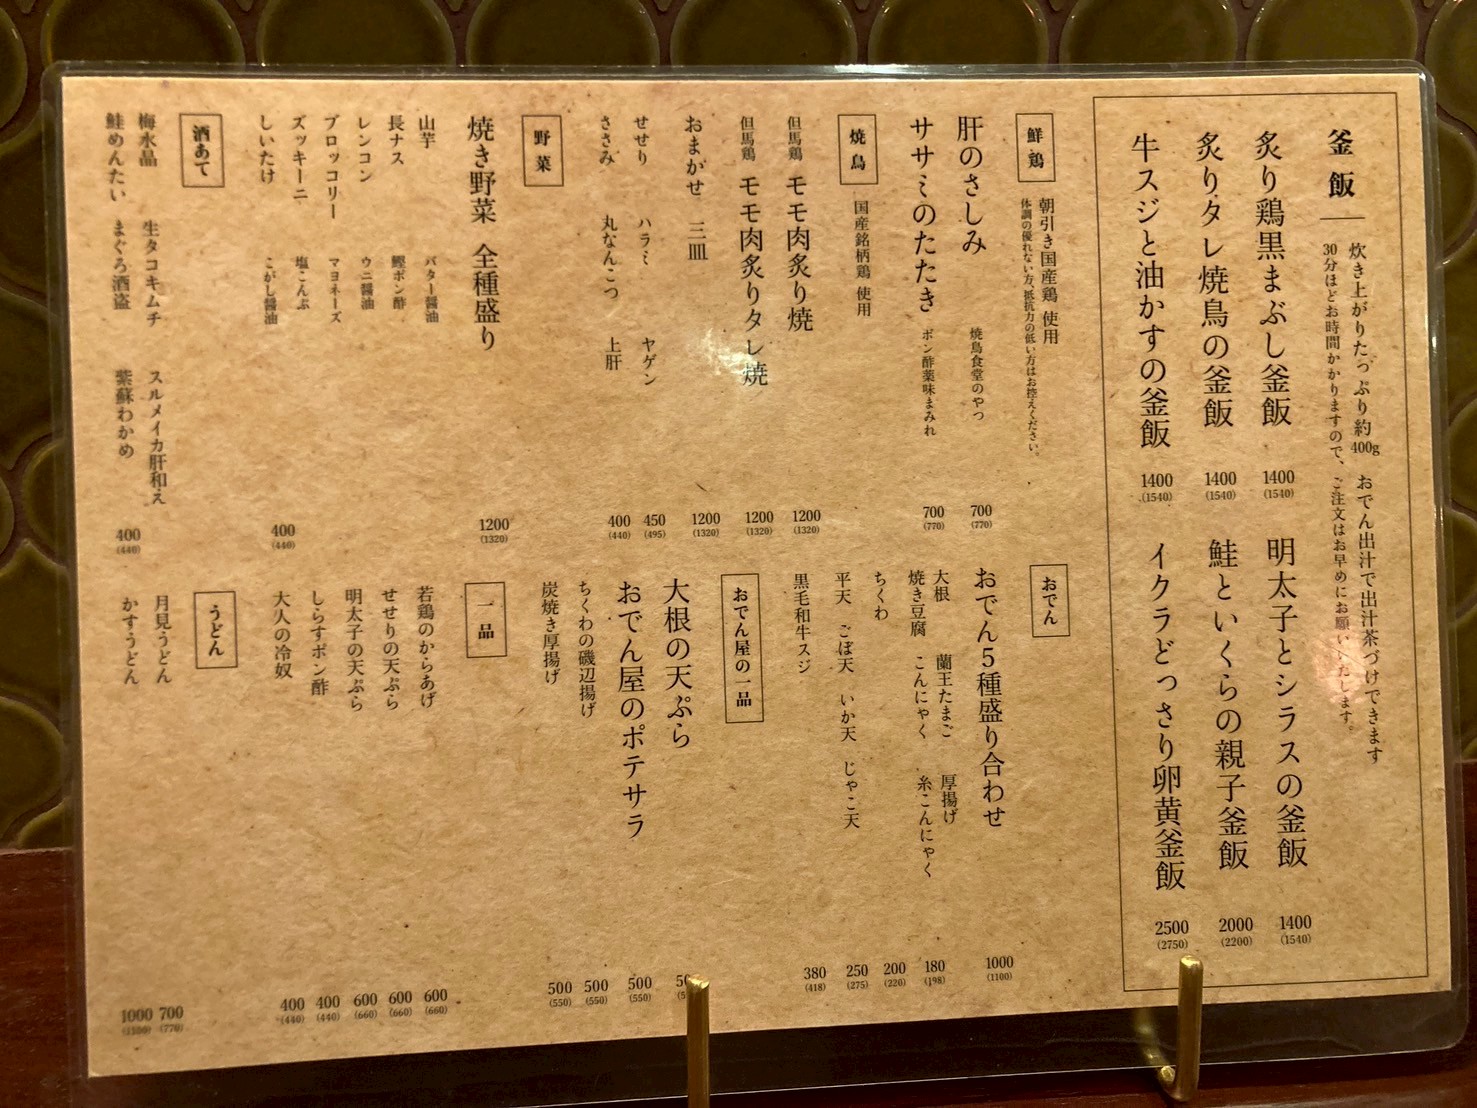 釜飯
炊き上がりたっぷり約400g おでん出汁で出汁茶づけできます
30分ほどお時間かかりますので、ご注文はお早めにお願いいたします。
炙り鶏黒まぶし釜飯 1400 (1540)
炙りタレ焼鳥の釜飯 1400 (1540)
牛スジと油かすの釜飯 1400 (1540)
明太子とシラスの釜飯 1400 (1540)
鮭といくらの親子釜飯 2000 (2200)
イクラどっさり卵黄釜飯 2500 (2750)
鮮鶏 朝引き国産鶏 使用
体調の優れない方、抵抗力の低い方はお控えください。
肝のさしみ 焼鳥食堂のやつ 700 (770)
ササミのたたき ポン酢薬味まみれ 700 (770)
焼鳥 国産銘柄鶏 使用
但馬鶏 モモ肉炙り焼 1200 (1320)
但馬鶏 モモ肉炙りタレ焼 1200 (1320)
おまかせ 三皿 1200 (1320)
せせり ハラミ ヤゲン 450 (495)
ささみ 丸なんこつ 上肝 400 (440)
野菜
焼き野菜 全種盛り 1200 (1320)
山芋 バター醤油
長ナス 鰹ポン酢
レンコン ウニ醤油
ブロッコリー マヨネーズ
ズッキーニ 塩こんぶ
しいたけ こがし醤油 400 (440)
酒あて
梅水晶 生タコキムチ スルメイカ肝和え
鮭めんたい まぐろ酒盗 紫蘇わかめ 400 (440)
おでん
おでん5種盛り合わせ 1000 (1100)
大根 蘭王たまご 厚揚げ
焼き豆腐 こんにゃく 糸こんにゃく 180 (198)
ちくわ 200 (220)
平天 ごぼ天 いか天 じゃこ天 250 (275)
黒毛和牛スジ 380 (418)
おでん屋の一品
大根の天ぷら
おでん屋のポテサラ 500 (550)
ちくわの磯辺揚げ 500 (550)
炭焼き厚揚げ 500 (550)
一品
若鶏のからあげ 600 (660)
せせりの天ぷら 600 (660)
明太子の天ぷら 600 (660)
しらすポン酢 400 (440)
大人の冷奴 400 (440)
うどん
月見うどん 700 (770)
かすうどん 1000